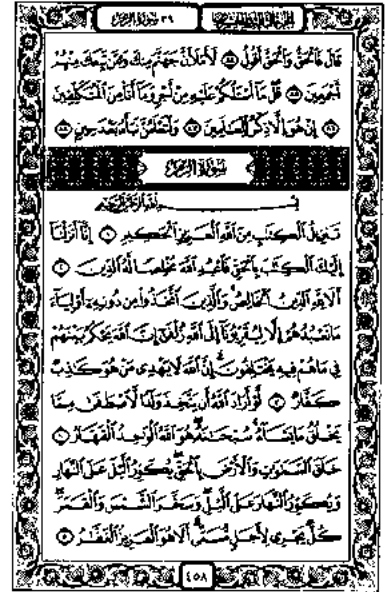 ٣٩ سورة الزمر
قَالَ فَالْحَقُّ وَالْحَقَّ أَقُولُ ٨٤ لَأَمْلَأَنَّ جَهَنَّمَ مِنكَ وَمِمَّن تَبِعَكَ مِنْهُمْ
أَجْمَعِينَ ٨٥ قُلْ مَا أَسْأَلُكُمْ عَلَيْهِ مِنْ أَجْرٍ وَمَا أَنَا مِنَ الْمُتَكَلِّفِينَ
٨٦ إِنْ هُوَ إِلَّا ذِكْرٌ لِّلْعَالَمِينَ ٨٧ وَلَتَعْلَمُنَّ نَبَأَهُ بَعْدَ حِينٍ ٨٨
سورة الزمر
بِسْمِ اللَّهِ الرَّحْمَٰنِ الرَّحِيمِ
تَنزِيلُ الْكِتَابِ مِنَ اللَّهِ الْعَزِيزِ الْحَكِيمِ ١ إِنَّا أَنزَلْنَا
إِلَيْكَ الْكِتَابَ بِالْحَقِّ فَاعْبُدِ اللَّهَ مُخْلِصًا لَّهُ الدِّينَ ٢
أَلَا لِلَّهِ الدِّينُ الْخَالِصُ وَالَّذِينَ اتَّخَذُوا مِن دُونِهِ أَوْلِيَاءَ
مَا نَعْبُدُهُمْ إِلَّا لِيُقَرِّبُونَا إِلَى اللَّهِ زُلْفَىٰ إِنَّ اللَّهَ يَحْكُمُ بَيْنَهُمْ
فِي مَا هُمْ فِيهِ يَخْتَلِفُونَ إِنَّ اللَّهَ لَا يَهْدِي مَنْ هُوَ كَاذِبٌ
كَفَّارٌ ٣ لَّوْ أَرَادَ اللَّهُ أَن يَتَّخِذَ وَلَدًا لَّاصْطَفَىٰ مِمَّا
يَخْلُقُ مَا يَشَاءُ سُبْحَانَهُ هُوَ اللَّهُ الْوَاحِدُ الْقَهَّارُ ٤
خَلَقَ السَّمَاوَاتِ وَالْأَرْضَ بِالْحَقِّ يُكَوِّرُ اللَّيْلَ عَلَى النَّهَارِ
وَيُكَوِّرُ النَّهَارَ عَلَى اللَّيْلِ وَسَخَّرَ الشَّمْسَ وَالْقَمَرَ
كُلٌّ يَجْرِي لِأَجَلٍ مُّسَمًّى أَلَا هُوَ الْعَزِيزُ الْغَفَّارُ ٥
٤٥٨